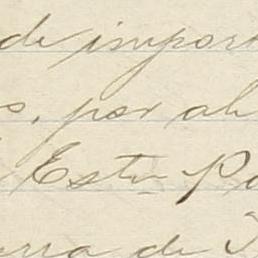 de impor
s, por ah
Este Pa
rra de